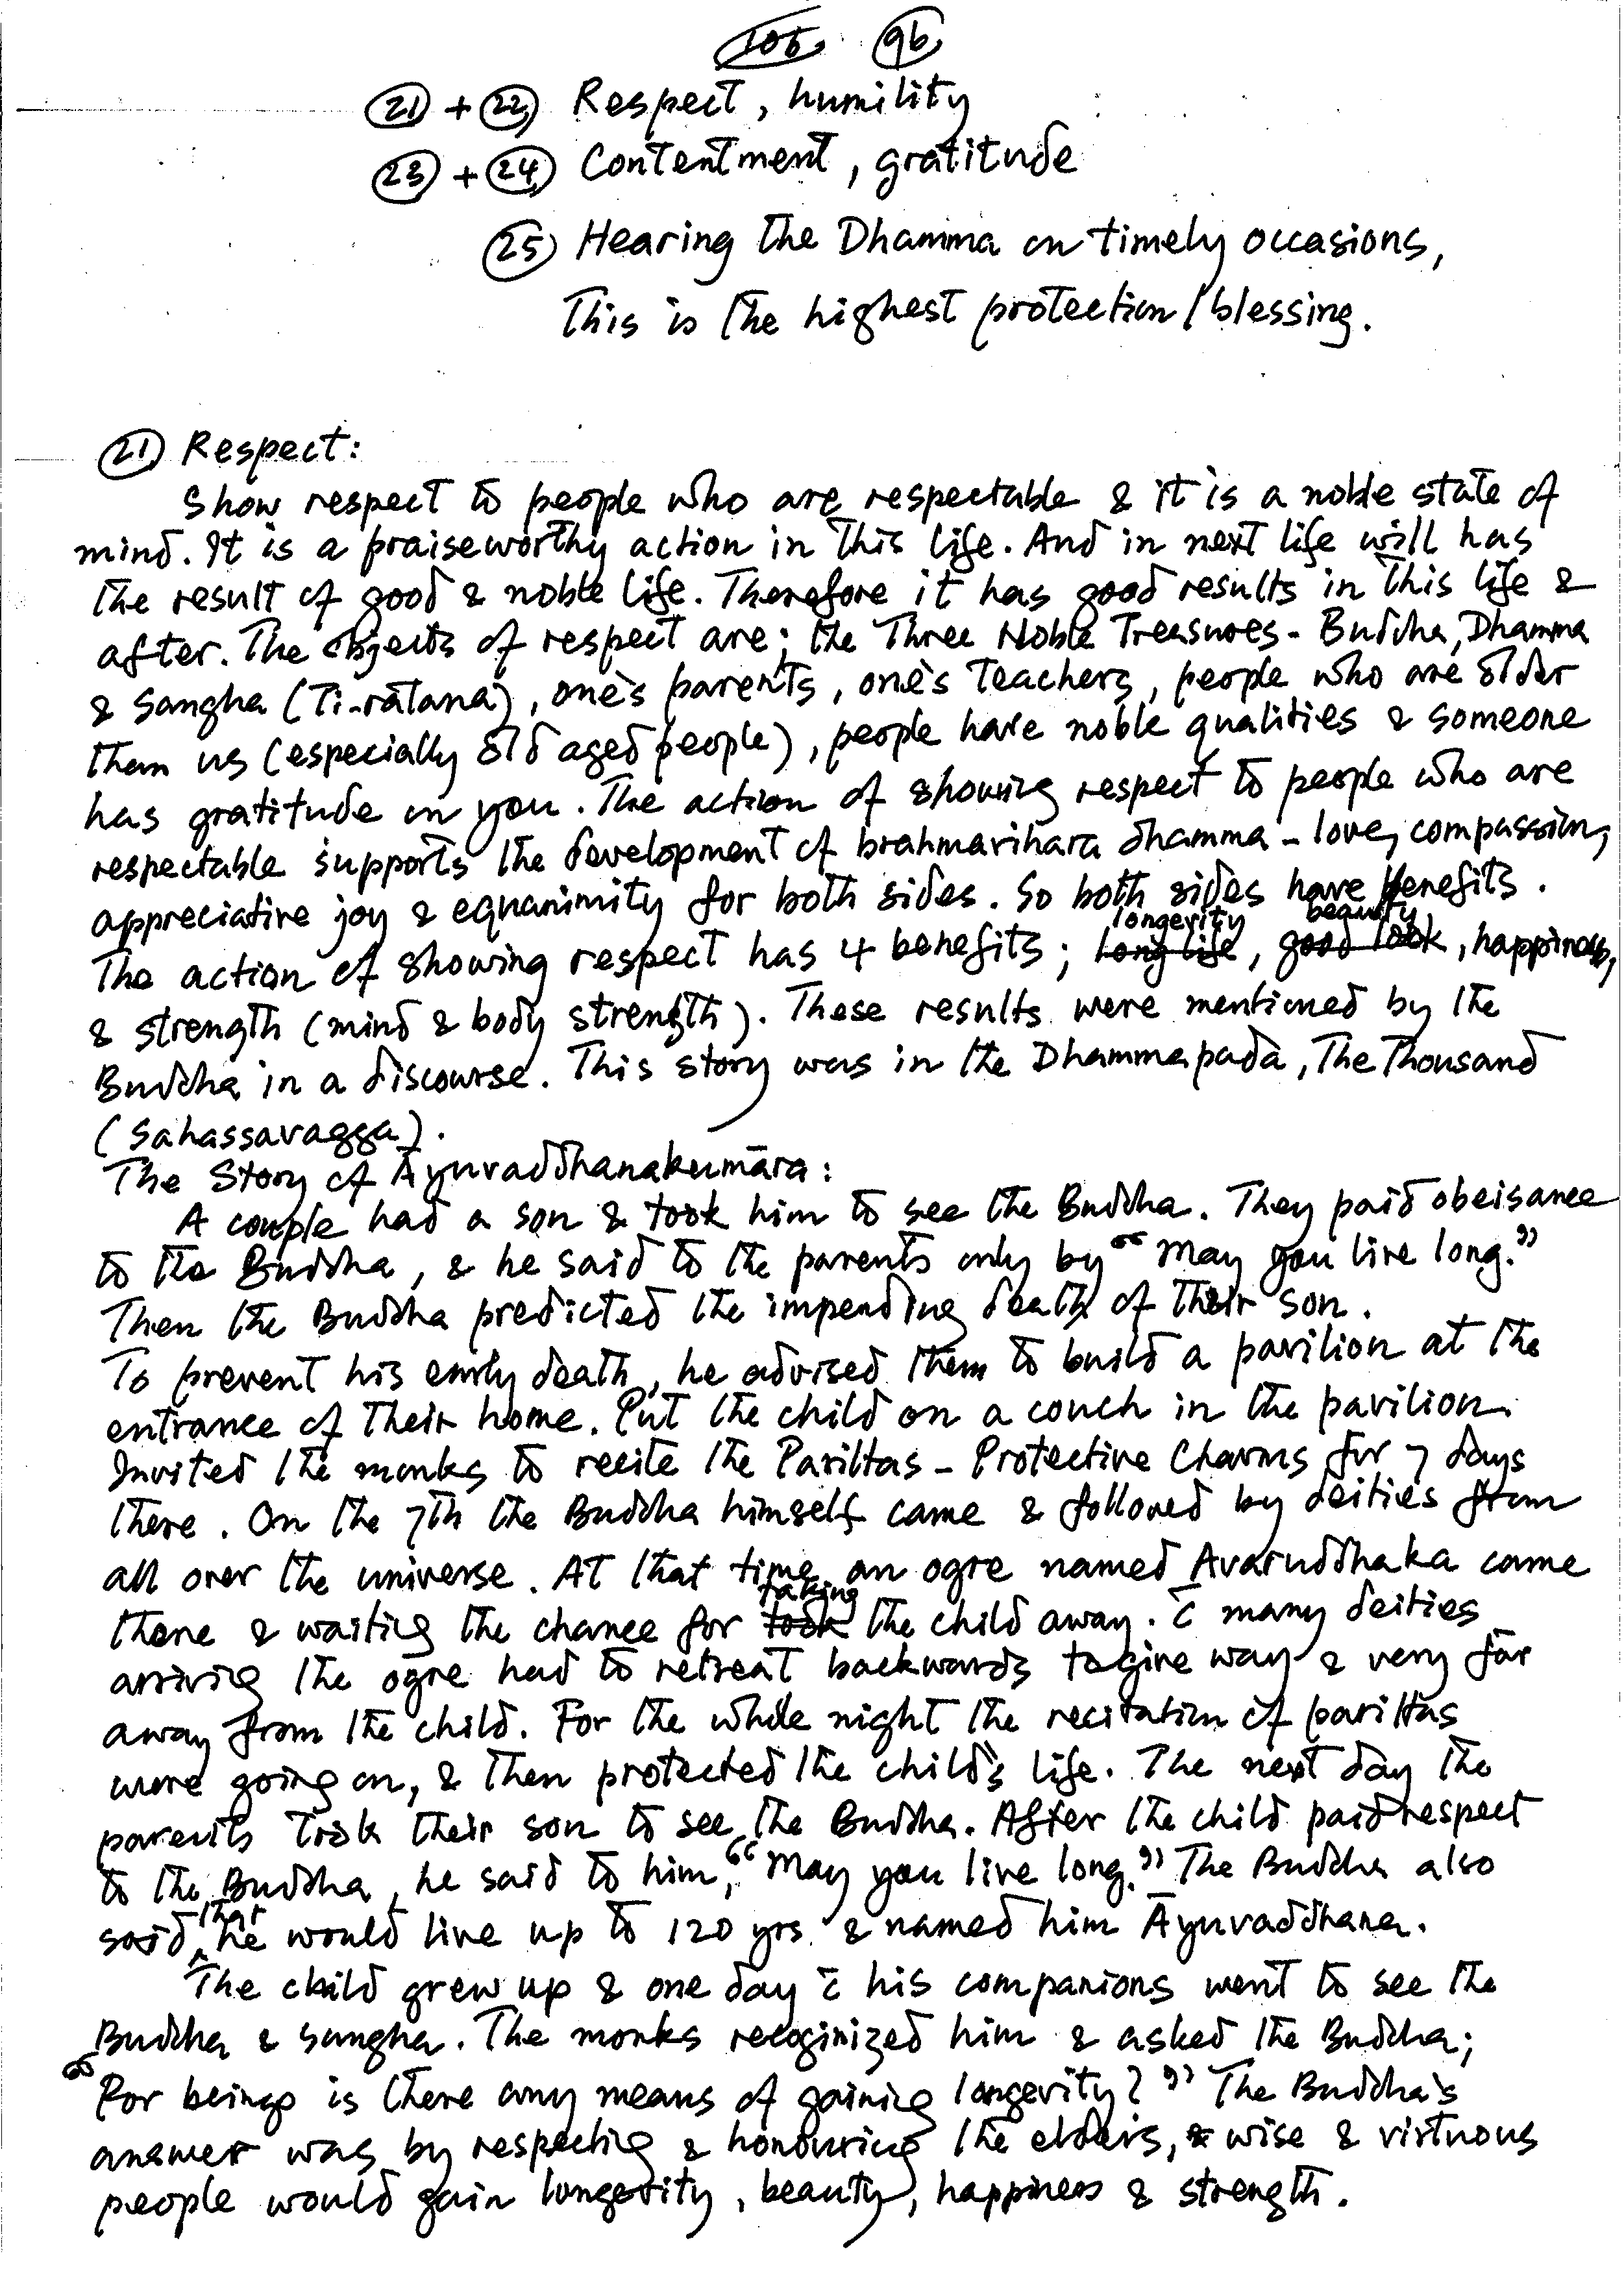 105 96
21 + 22 Respect, humility
23 + 24 Contentment, gratitude
25 Hearing the Dhamma on timely occasions,
This is the highest protection / blessing.
21 Respect:
Show respect to people who are respectable & it is a noble state of
mind. It is a praiseworthy action in this life. And in next life will has
the result of good & noble life. Therefore it has good results in this life &
after. The objects of respect are; the Three Noble Treasures - Buddha, Dhamma
& Sangha (Ti-rātana), one's parents, one's teachers, people who are older
than us (especially old aged people), people have noble qualities & someone
has gratitude on you. The action of showing respect to people who are
respectable supports the development of brahmavihara dhamma - love, compassion,
appreciative joy & equanimity for both sides. So both sides have benefits.
longevity beauty
The action of showing respect has 4 benefits; long life, good look, happiness,
& strength (mind & body strength). These results were mentioned by the
Buddha in a discourse. This story was in the Dhammapada, The Thousand
(Sahassavagga).
The Story of Āyuvaddhanakumāra:
A couple had a son & took him to see the Buddha. They paid obeisance
to the Buddha, & he said to the parents only by “May you live long.”
Then the Buddha predicted the impending death of their son.
To prevent his early death, he advised them to build a pavilion at the
entrance of their home. Put the child on a couch in the pavilion.
Invited the monks to recite the Parittas - Protective Charms for 7 days
there. On the 7th the Buddha himself came & followed by deities from
all over the universe. At that time an ogre named Avaruddhaka came
taking
there & waiting the chance for took the child away. c̄ many deities
arriving the ogre had to retreat backwards to give way & very far
away from the child. For the whole night the recitation of parittas
were going on, & then protected the child's life. The next day the
parents took their son to see the Buddha. After the child paid respect
to the Buddha, he said to him, “May you live long.” The Buddha also
that
said he would live up to 120 yrs & named him Āyuvaddhana.
The child grew up & one day c̄ his companions went to see the
Buddha & Sangha. The monks recoginized him & asked the Buddha;
“For beings is there any means of gaining longevity?” The Buddha's
answer was by respecting & honouring the elders, & wise & virtuous
people would gain longevity, beauty, happiness & strength.